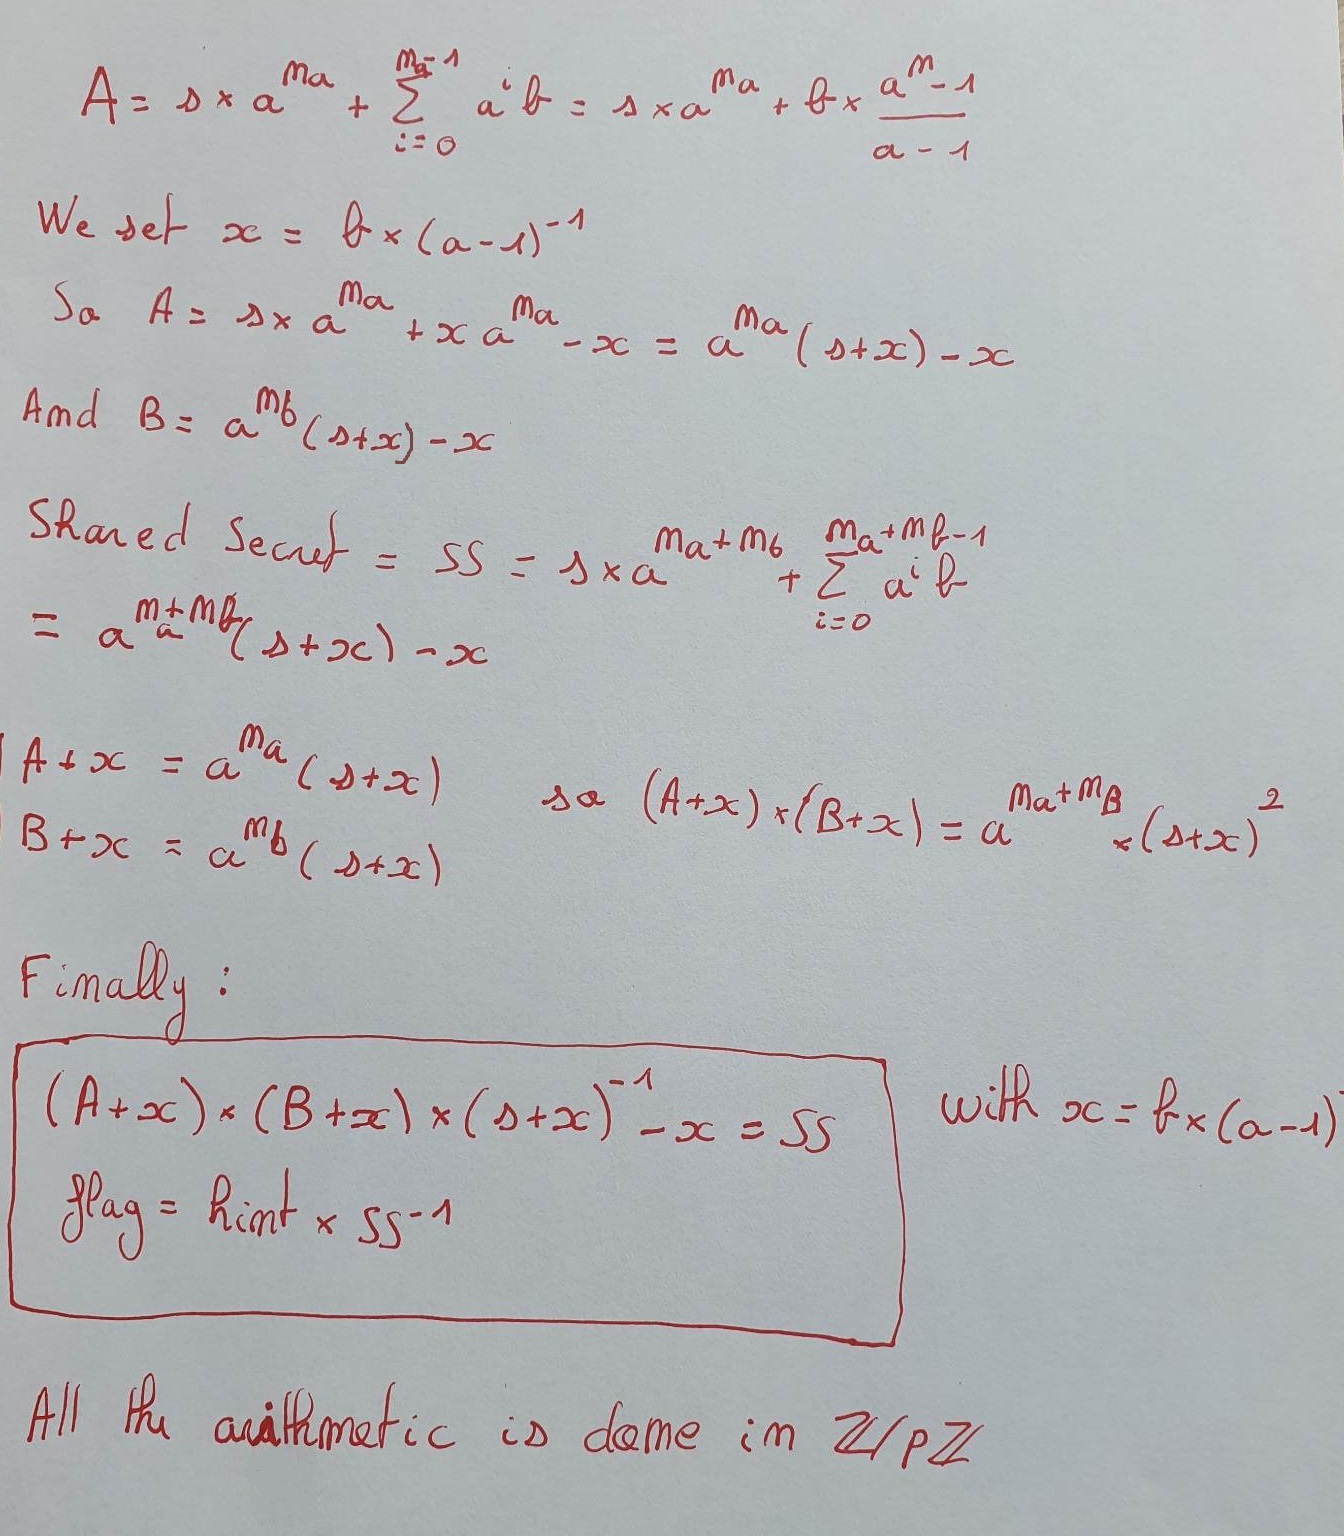 A = s × a^{na} + \sum_{i=0}^{na-1} a^i b = s × a^{na} + b × \frac{a^n - 1}{a - 1}
We set x = b × (a-1)^{-1}
So A = s × a^{na} + x a^{na} - x = a^{na} (s+x) - x
And B = a^{nb} (s+x) - x
Shared Secret = SS = s × a^{na+nb} + \sum_{i=0}^{na+nb-1} a^i b
= a^{na+nb} (s+x) - x
A + x = a^{na} (s+x)
B + x = a^{nb} (s+x)
so (A+x) × (B+x) = a^{na+nB} × (s+x)^2
Finally :
(A+x) × (B+x) × (s+x)^{-1} - x = SS
flag = hint × SS^{-1}
with x = b × (a-1)
All the arithmetic is done in ℤ/pℤ